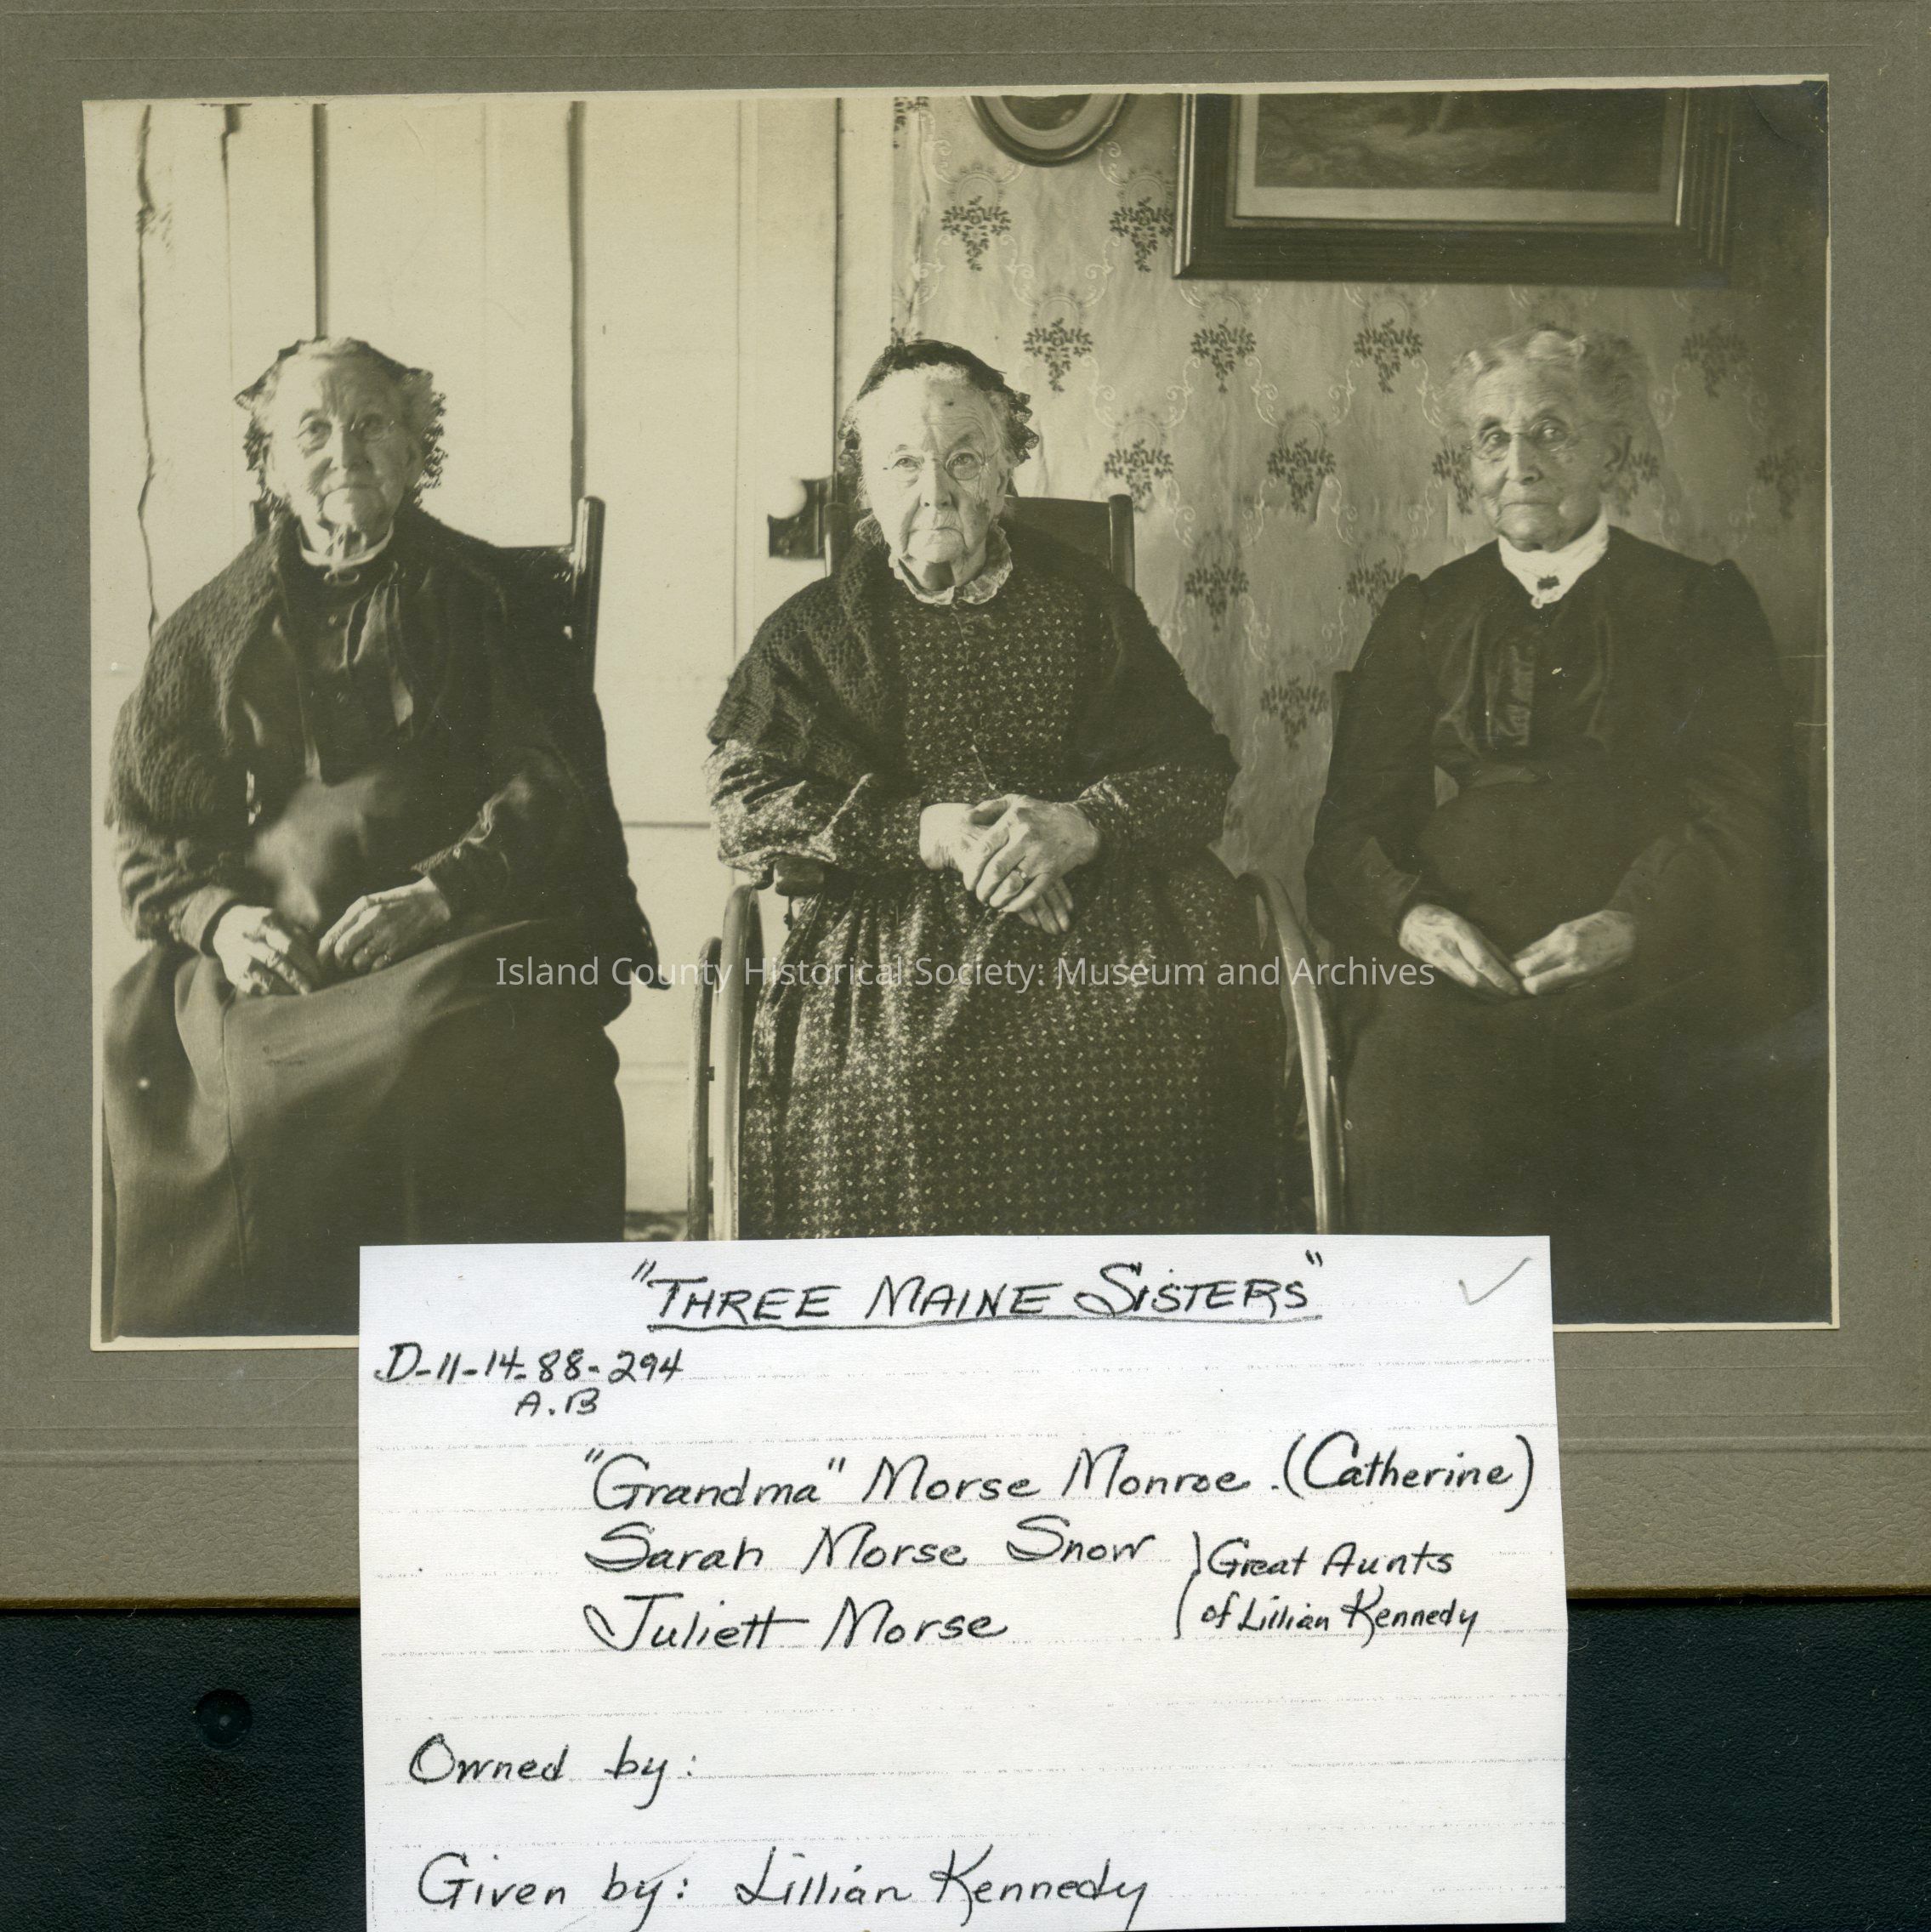 Island County Historical Society: Museum and Archives
"THREE MAINE SISTERS"
D-11-14-88-294
A.B
"Grandma" Morse Monroe (Catherine)
Sarah Morse Snow
Great Aunts
of Lillian Kennedy
Juliett Morse
Owned by:
Given by: Lillian Kennedy